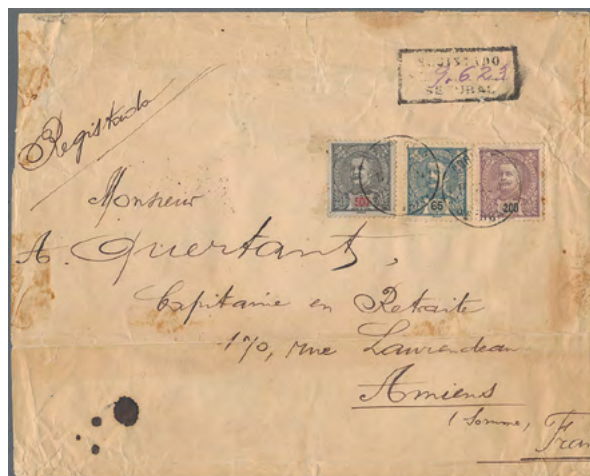 REGISTADO
9.623
SETUBAL
Registado
500
65
200
Monsieur
A. Quertant,
Capitaine en Retraite
170, rue Laurendeau
Amiens
(Somme,
Fran